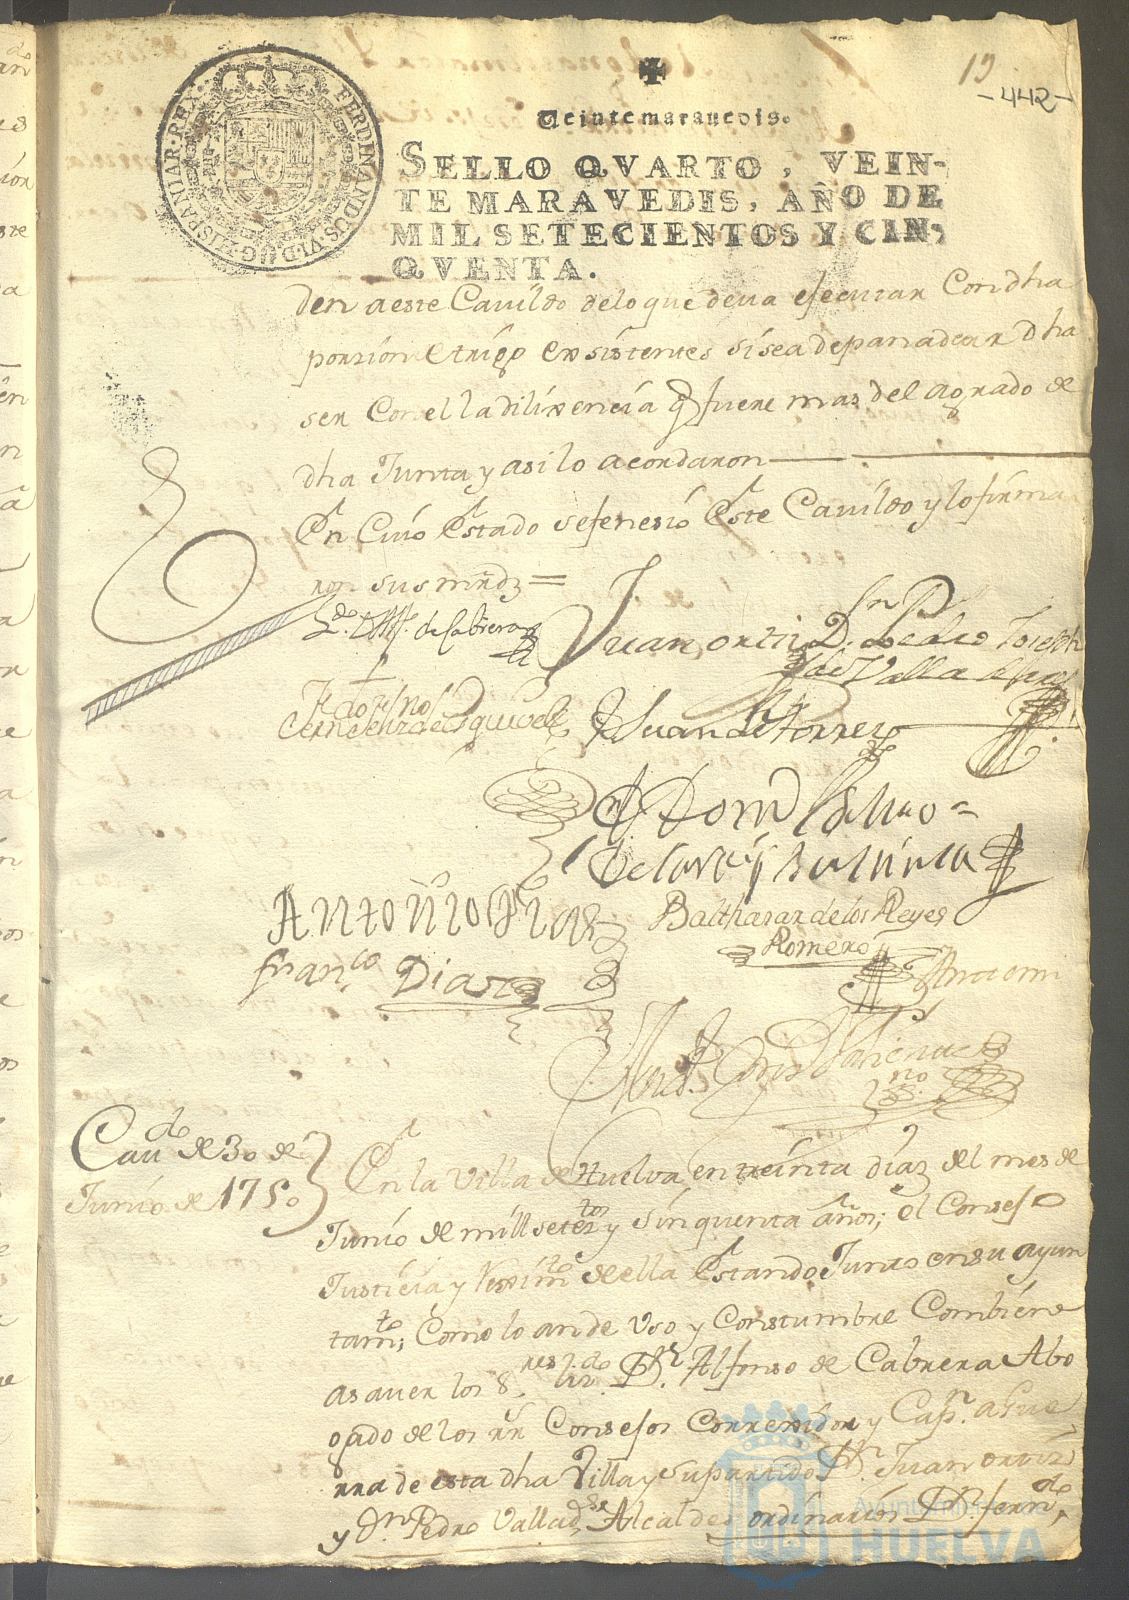 19
-442-
FERDINANDUS.VI.D.G.HISPANIAR.REX
Veinte maravedis.
SELLO QVARTO, VEIN-
TE MARAVEDIS, AÑO DE
MIL SETECIENTOS Y CIN-
QVENTA.
den a este Cavildo de lo que deva ejecutar Con dha
porzion de trigo exsistentes si sea de panadear dha
ser Con ella dilixencia q fuere mas del agrado de
dha Junta y asi lo acordaron
En Cuio Estado se fenesio Este Cavildo y lo firma
ron sus mrdz =
Ldo. D. Alf. de Cabrera
Juan ortiz
Dn. Pedro Joseph
de Valla
Juan de torres
Antonio
Balthasar de los Reyes
Romero
Franco Diaz
Ante mi
Cavdo de 30 de
Junio de 1750
En la Villa de Huelva en treinta dias del mes de
Junio de mill seteztos y sinquenta años; el Consejo
Justicia y Reximto de ella Estando Juntos en su ayun
tamto; Como lo an de Uso y Constumbre Combiene
a saver los Sres Lizdo Dn. Alfonso de Cabrera Abo
gado de los rr Consejos Correxidor y Capn. a Gue
rra de esta dha Villa y su partido Dn. Juan ortiz
y Dn Pedro Vallad Alcaldes ordinarios Dn. ferndo
Ayuntamiento de
HUELVA